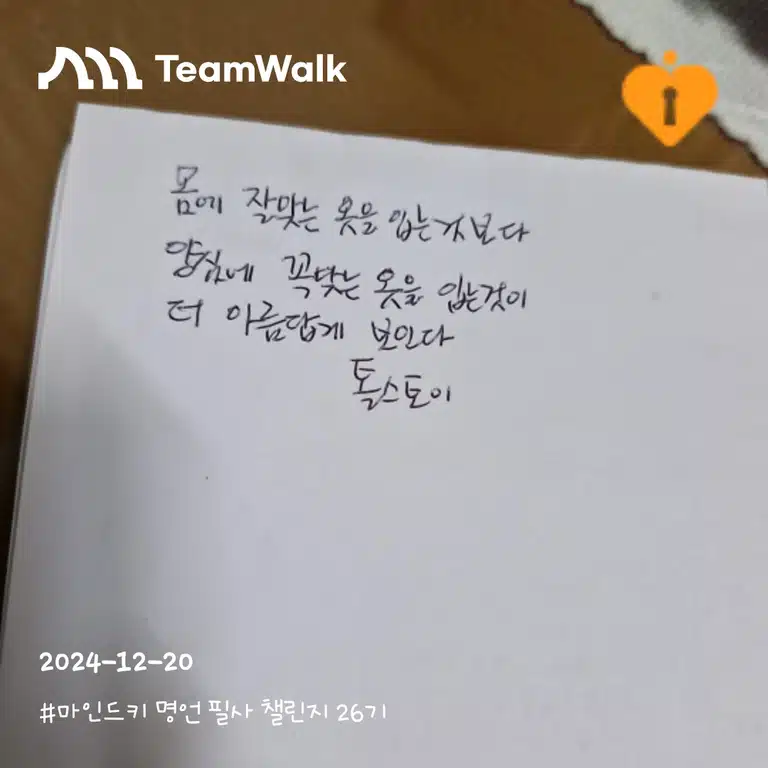 TeamWalk
몸에 잘맞는 옷을 입는것보다
양심에 꼭맞는 옷을 입는것이
더 아름답게 보인다
톨스토이
2024-12-20
#마인드키 명언 필사 챌린지 26기